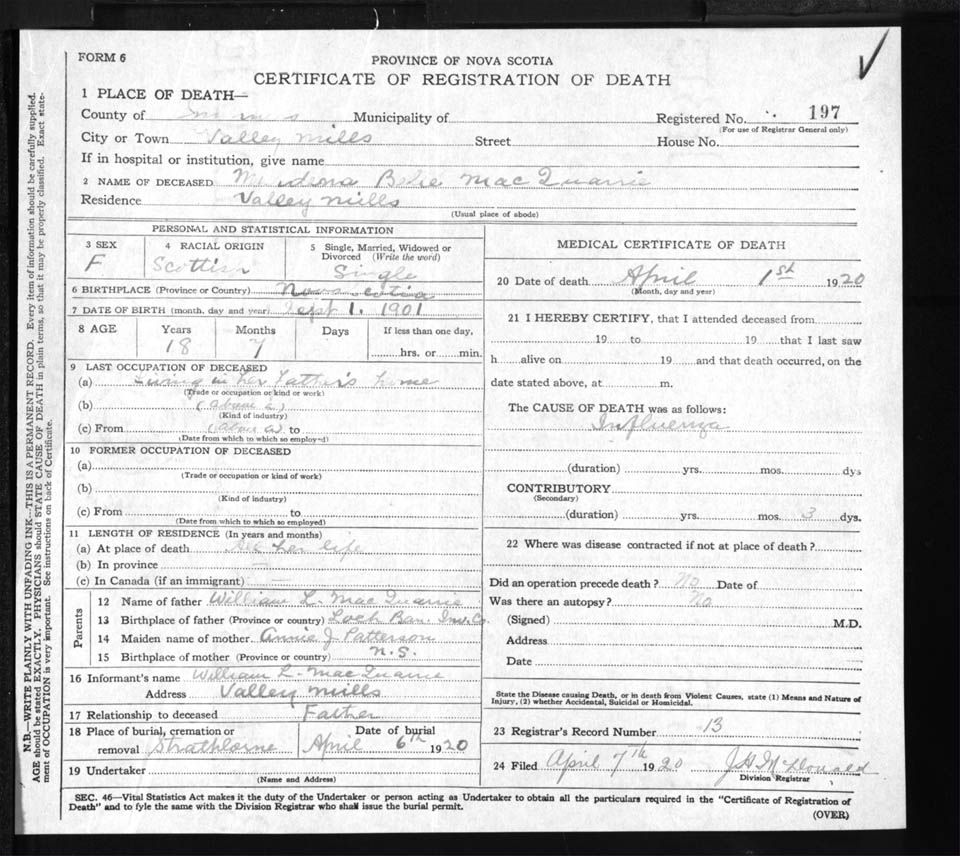 FORM 6
PROVINCE OF NOVA SCOTIA
CERTIFICATE OF REGISTRATION OF DEATH
1 PLACE OF DEATH—
County of Municipality of Registered No. 197
(For use of Registrar General only)
City or Town Valley Mills Street House No.
If in hospital or institution, give name
2 NAME OF DECEASED MacQuarrie
Residence Valley Mills
(Usual place of abode)
PERSONAL AND STATISTICAL INFORMATION
3 SEX F
4 RACIAL ORIGIN Scottish
5 Single, Married, Widowed or Divorced (Write the word) Single
6 BIRTHPLACE (Province or Country) Nova Scotia
7 DATE OF BIRTH (month, day and year) Sept 1. 1901
8 AGE Years Months Days If less than one day,
18 7 hrs. or min.
9 LAST OCCUPATION OF DECEASED
(a) Living in her Father's home
(Trade or occupation or kind or work)
(b) (above a)
(Kind of industry)
(c) From (above a) to
(Date from which to which so employed)
10 FORMER OCCUPATION OF DECEASED
(a)
(Trade or occupation or kind of work)
(b)
(Kind of industry)
(c) From to
(Date from which to which so employed)
11 LENGTH OF RESIDENCE (In years and months)
(a) At place of death All her life
(b) In province —
(c) In Canada (if an immigrant) —
Parents
12 Name of father William L. MacQuarrie
13 Birthplace of father (Province or country) Loch Ban. Inv. Co.
14 Maiden name of mother Annie J Patterson
15 Birthplace of mother (Province or country) N.S.
16 Informant's name William L. MacQuarrie
Address Valley Mills
17 Relationship to deceased Father
18 Place of burial, cremation or Date of burial
removal Strathlorne April 6th 1920
19 Undertaker
(Name and Address)
MEDICAL CERTIFICATE OF DEATH
20 Date of death April 1st 1920
(Month, day and year)
21 I HEREBY CERTIFY, that I attended deceased from
19 to 19 that I last saw
h alive on 19 and that death occurred, on the
date stated above, at m.
The CAUSE OF DEATH was as follows:
Influenza
(duration) yrs. mos. dys
CONTRIBUTORY
(Secondary)
(duration) yrs. mos. 3 dys.
22 Where was disease contracted if not at place of death?
Did an operation precede death? No Date of
Was there an autopsy? No
(Signed) M.D.
Address
Date
State the Disease causing Death, or in death from Violent Causes, state (1) Means and Nature of
Injury, (2) whether Accidental, Suicidal or Homicidal.
23 Registrar's Record Number 13
24 Filed April 7th 1920 J H McDonald
Division Registrar
SEC. 46—Vital Statistics Act makes it the duty of the Undertaker or person acting as Undertaker to obtain all the particulars required in the "Certificate of Registration of
Death" and to fyle the same with the Division Registrar who shall issue the burial permit.
(OVER)
N.B.—WRITE PLAINLY WITH UNFADING INK—THIS IS A PERMANENT RECORD. Every item of information should be carefully supplied.
AGE should be stated EXACTLY. PHYSICIANS should STATE CAUSE OF DEATH in plain terms, so that it may be properly classified. Exact state-
ment of OCCUPATION is very important. See instructions on back of Certificate.